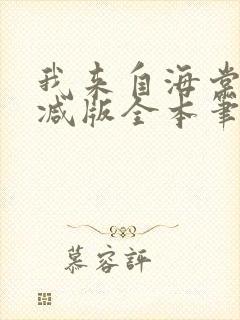 我来自海棠
减版全本笔
慕容評